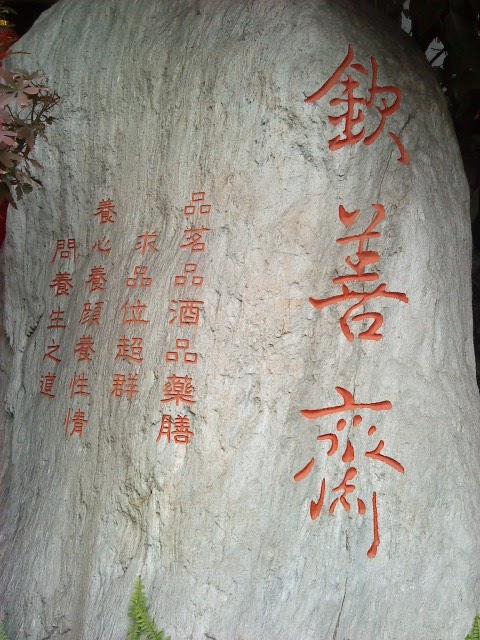 欽善齋
品茗品酒品藥膳
求品位超群
養心養顔養性情
問養生之道